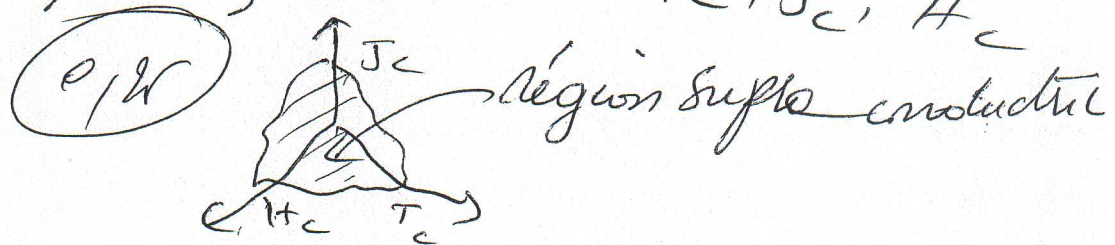 Jc, Hc
0,25
Jc région supra conductric
Hc Tc